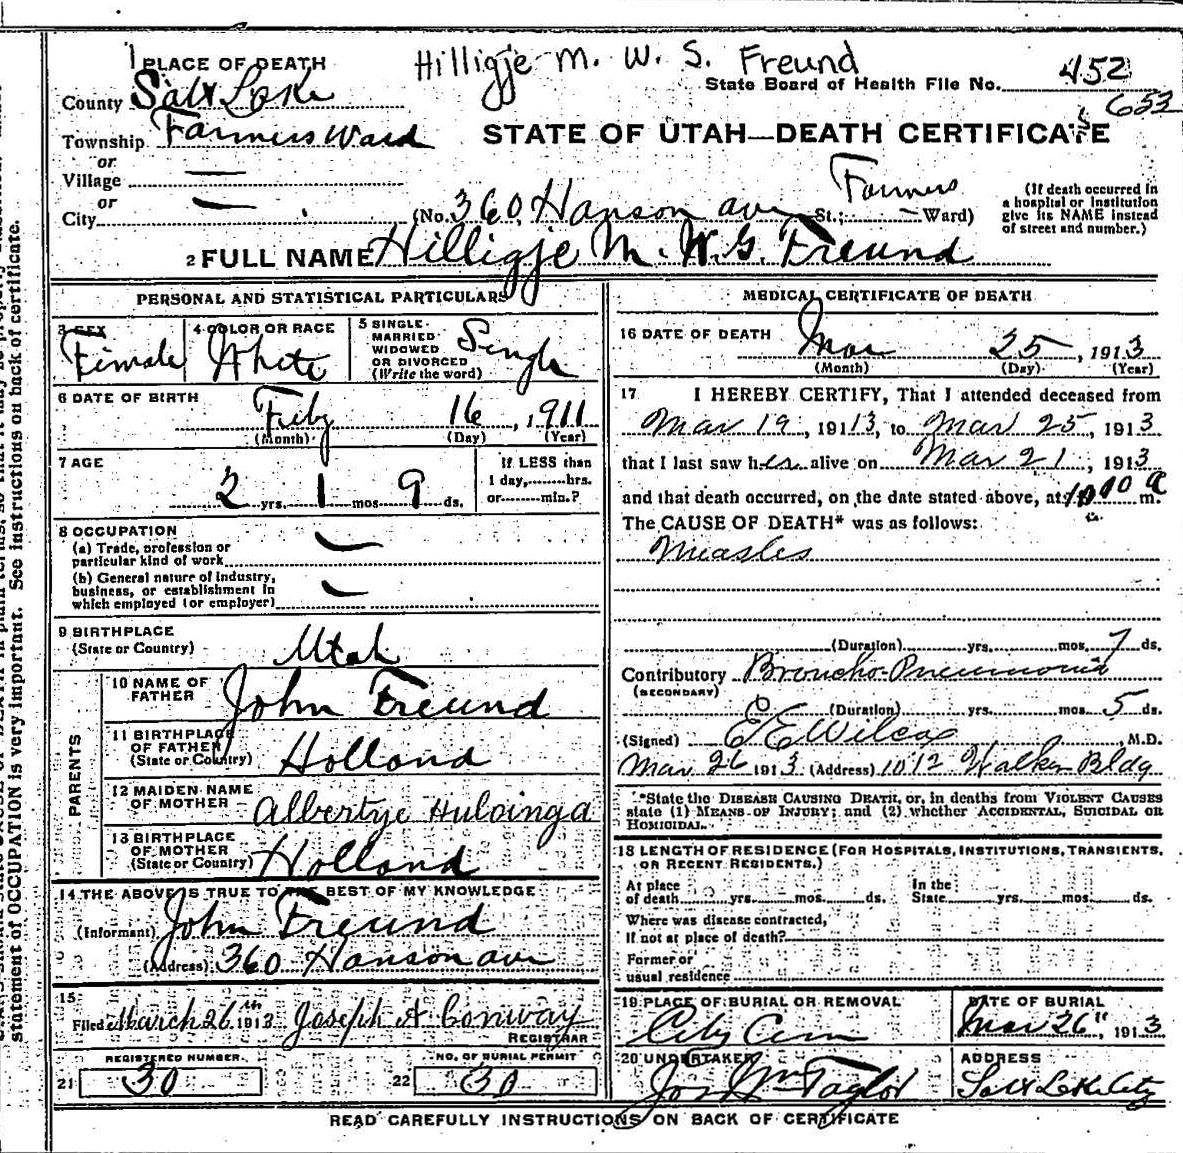 1 PLACE OF DEATH
Hilligje M. W. S. Freund
State Board of Health File No. 452
County Salt Lake
653
Township Farmers Ward
STATE OF UTAH—DEATH CERTIFICATE
or
Village —
or
City —
(No. 360 Hanson ave St.; Farmers Ward)
(If death occurred in
a hospital or institution
give its NAME instead
of street and number.)
2 FULL NAME Hilligje M. W. G. Freund
PERSONAL AND STATISTICAL PARTICULARS
3 SEX
Female
4 COLOR OR RACE
White
5 SINGLE
MARRIED
WIDOWED
OR DIVORCED
(Write the word)
Single
6 DATE OF BIRTH
Feby 16, 1911
(Month) (Day) (Year)
7 AGE
2 yrs. 1 mos. 9 ds.
If LESS than
1 day, hrs.
or min.?
8 OCCUPATION
(a) Trade, profession or
particular kind of work —
(b) General nature of industry,
business, or establishment in
which employed (or employer) —
9 BIRTHPLACE
(State or Country)
Utah
PARENTS
10 NAME OF
FATHER
John Freund
11 BIRTHPLACE
OF FATHER
(State or Country)
Holland
12 MAIDEN NAME
OF MOTHER
Albertje
13 BIRTHPLACE
OF MOTHER
(State or Country)
Holland
14 THE ABOVE IS TRUE TO THE BEST OF MY KNOWLEDGE
(Informant) John Freund
(Address) 360 Hanson ave
15
Filed March 26th 1913 Joseph A Conway
REGISTRAR
REGISTERED NUMBER
21 30
NO. OF BURIAL PERMIT
22 30
MEDICAL CERTIFICATE OF DEATH
16 DATE OF DEATH
Mar 25, 1913
(Month) (Day) (Year)
17 I HEREBY CERTIFY, That I attended deceased from
Mar 19, 1913, to Mar 25, 1913
that I last saw her alive on Mar 21, 1913
and that death occurred, on the date stated above, at 10 10 a m.
The CAUSE OF DEATH* was as follows:
Measles
(Duration) yrs. mos. 7 ds.
Contributory Broncho-Pneumonia
(SECONDARY)
(Duration) yrs. mos. 5 ds.
(Signed) E E Wilcox M.D.
Mar 26 1913 (Address) 1012 Walker Bldg
*State the DISEASE CAUSING DEATH, or, in deaths from VIOLENT CAUSES
state (1) MEANS OF INJURY; and (2) whether ACCIDENTAL, SUICIDAL OR
HOMICIDAL.
18 LENGTH OF RESIDENCE (FOR HOSPITALS, INSTITUTIONS, TRANSIENTS,
OR RECENT RESIDENTS.)
At place
of death yrs. mos. ds.
In the
State yrs. mos. ds.
Where was disease contracted,
If not at place of death?
Former or
usual residence
19 PLACE OF BURIAL OR REMOVAL
City Cem
DATE OF BURIAL
Mar 26", 1913
20 UNDERTAKER
Jos Wm Taylor
ADDRESS
Salt Lake City
READ CAREFULLY INSTRUCTIONS ON BACK OF CERTIFICATE
statement of OCCUPATION is very important. See instructions on back of certificate.